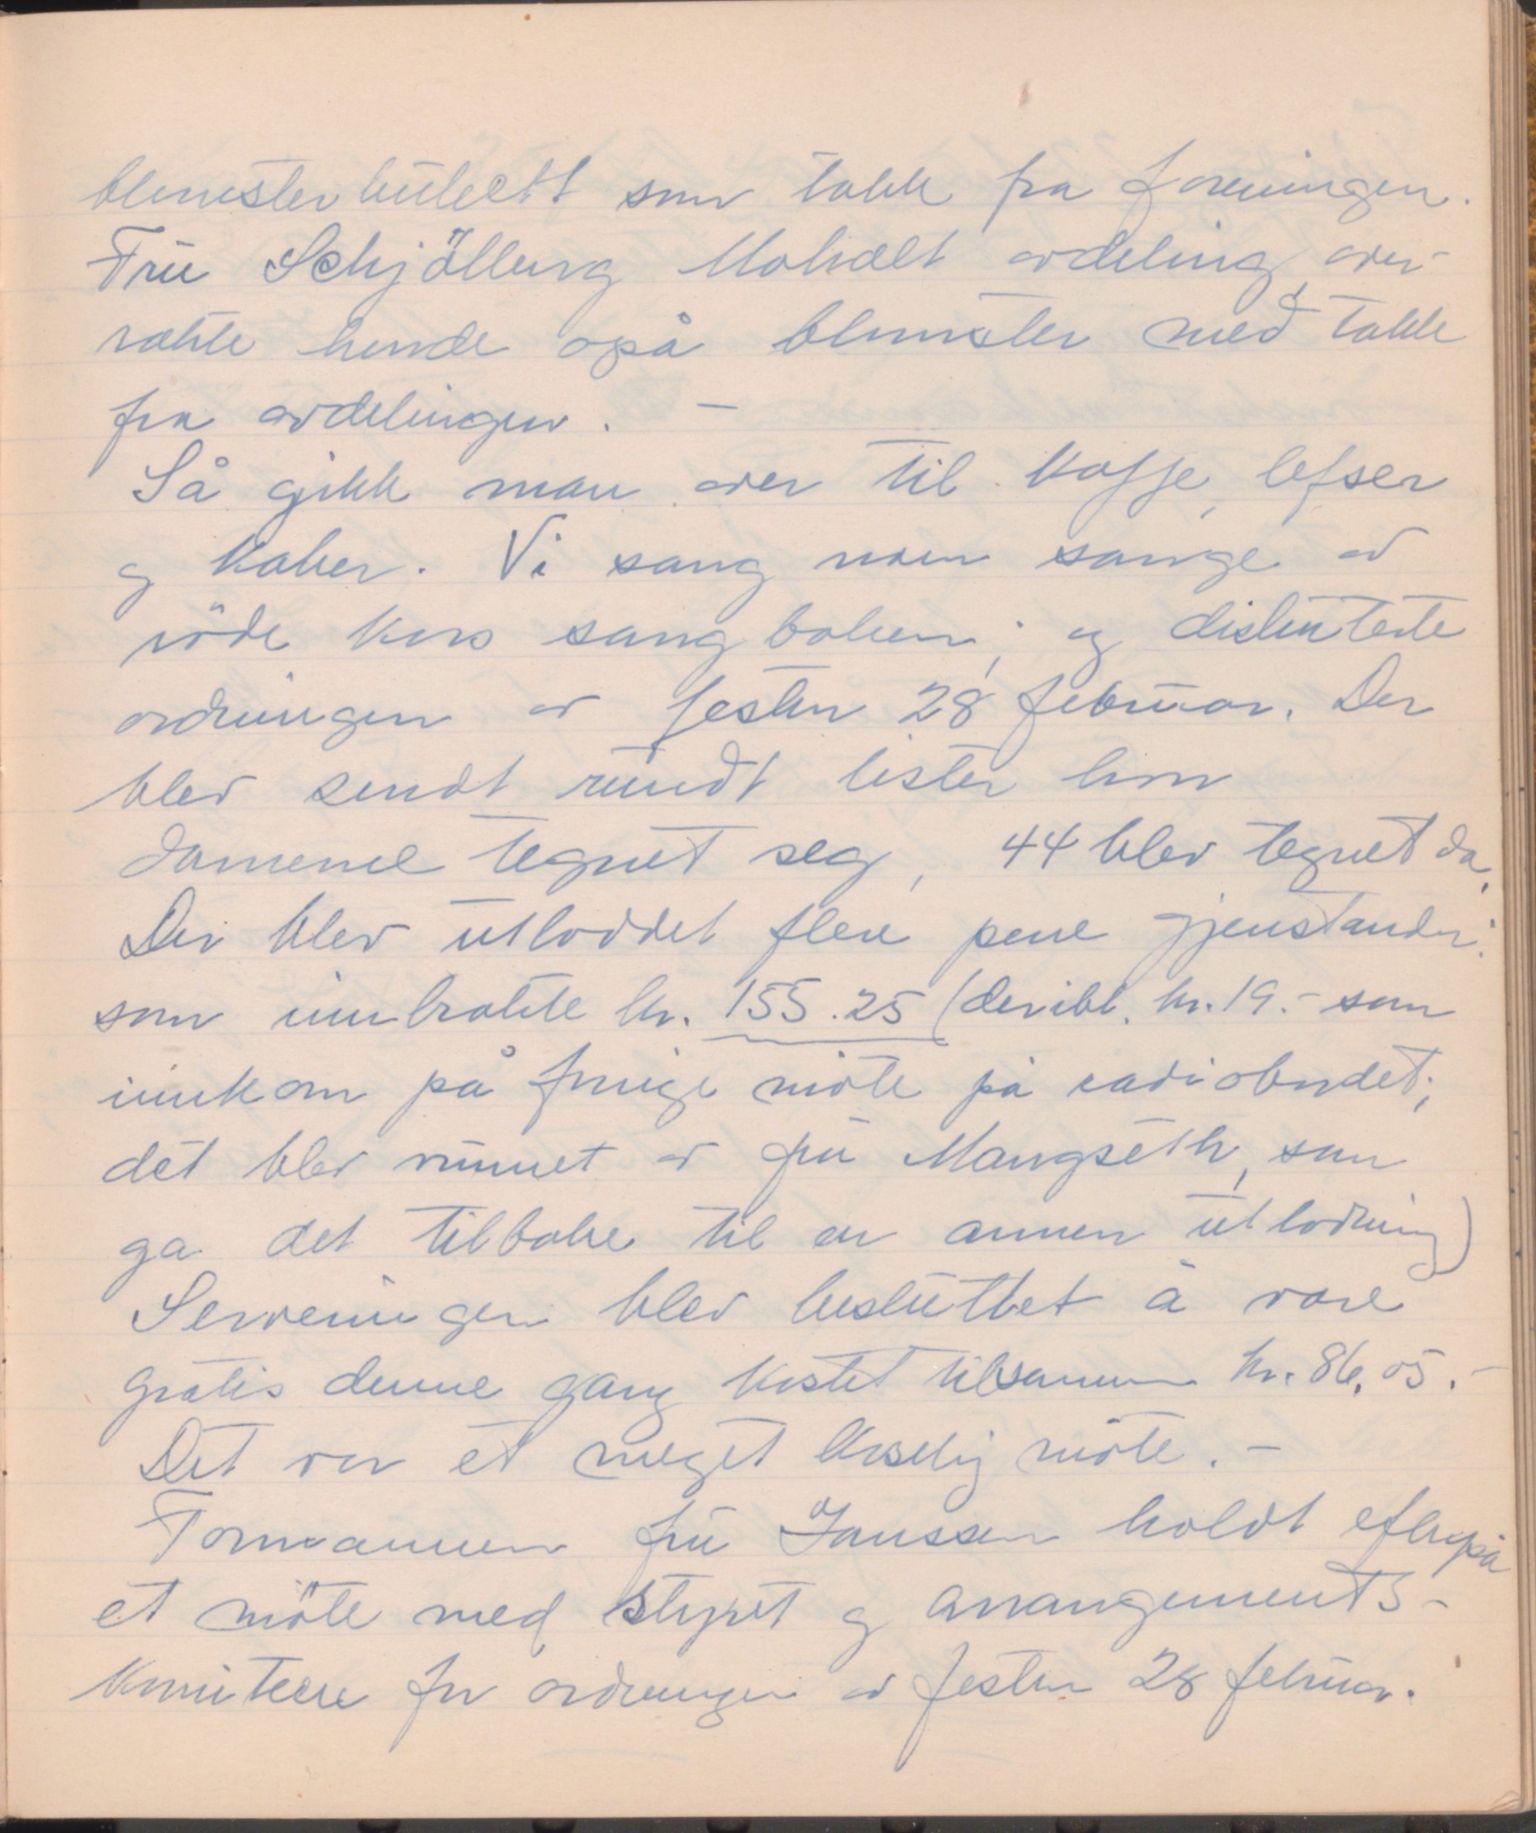 blomsterbukett som takk fra foreningen.
Fru Schjölberg Moholt avdeling over-
rakte hende også blomster med takk
fra avdelingen. —
Så gikk man over til kaffe, lefser
og kaker. Vi sang noen sange av
röde kors sangboken; og diskuterte
ordningen av festen 28 februar. Der
blev sendt rundt lister hvor
damene tegnet seg, 44 blev tegnet da.
Der blev utloddet flere pene gjenstander:
som innbrakte kr. 155.25 (deribl. kr. 19.- som
innkom på forrige möte på radiobordet;
det blev vunnet av fru Mangseth, som
ga det tilbake til en annen utlodning)
Serveringen blev besluttet å være
gratis denne gang kostet tilsammen kr. 86,05.-
Det var et meget koselig möte. —
Formannen fru Janssen holdt efterpå
et möte med styret og arrangements-
komiteere for ordningen av festen 28 februar.